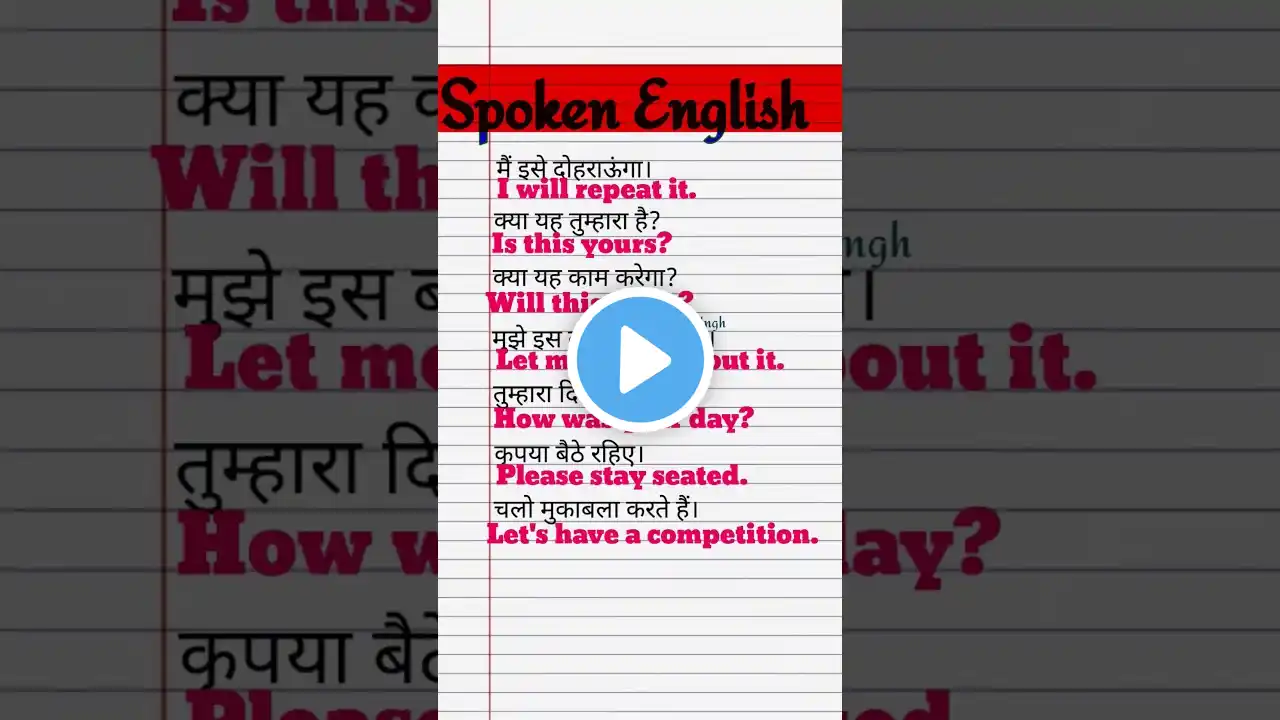 Spoken English
मैं इसे दोहराऊंगा।
I will repeat it.
क्या यह तुम्हारा है?
Is this yours?
क्या यह काम करेगा?
Will this
मुझे इस
Let out it.
तुम्हारा
How was day?
कृपया बैठे रहिए।
Please stay seated.
चलो मुकाबला करते हैं।
Let's have a competition.